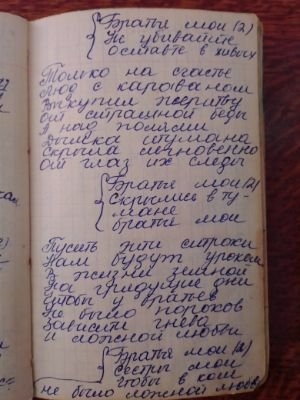 Братья мои (2)
Не убивайте
оставте в живых
Только на счастье
Люд с караваном
Выкупил жертву
от страшной беды
А над полями
Дымка тумана
Скрыла мгновенно
от глаз их следы
Братья мои (2)
Скрылись в ту-
мане
братья мои
Пусть эти строки
Нам будут уроком
В жизни земной
На грядущие дни
Чтобы у братьев
Не было пороков
Зависти гнева
и ложной любви
Братья мои (2)
Сестры мои
чтобы в ком
не было ложной любви